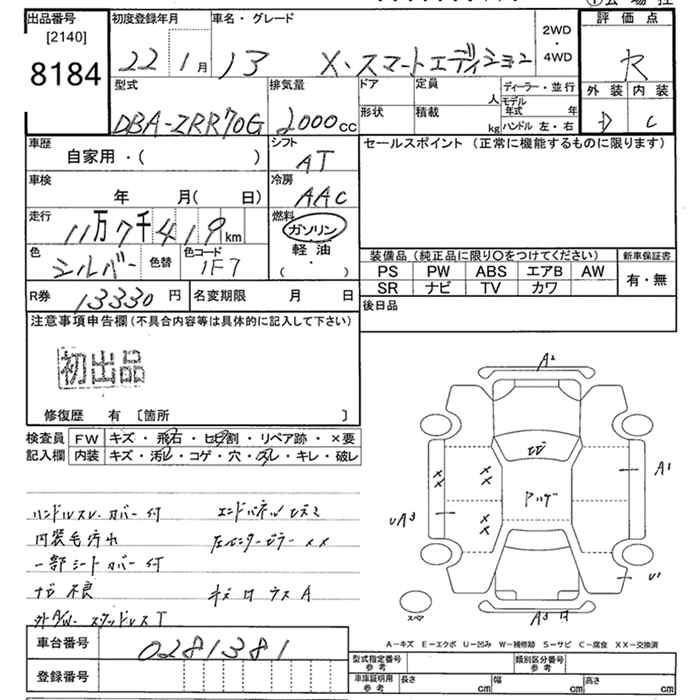 出品番号 初度登録年月 車名・グレード 評価点
[2140]
8184
22 1月 13 X・スマートエディション 2WD・4WD
外装 内装
D C
型式 排気量 ドア 定員 人 ディーラー・並行
モデル年式 年
形状 積載 kg ハンドル 左・右
DBA-ZRR70G 2000cc
車歴 自家用・( ) シフト AT セールスポイント(正常に機能するものに限ります)
車検 年 月( 日) 冷房 AAC
走行 11万7千419km 燃料 ガソリン
軽油
・( )
色 シルバー 色替 色コード 1F7
装備品(純正品に限り○をつけてください) 新車保証書
PS PW ABS エアB AW 有・無
SR ナビ TV カワ
R券 13330円 名変期限 月 日 後日品
注意事項申告欄(不具合内容等は具体的に記入して下さい)
初出品
修復歴 有 〔箇所 〕
検査員記入欄 FW キズ・飛石・ヒビ割・リペア跡・×要
内装 キズ・汚レ・コゲ・穴・スレ・キレ・破レ
ハンドルスレ カバー付
内装毛汚れ
一部シートカバー付
ナビ不良
外アルミ スタッドレスT
左センターピラー ××
A2
A1
UA3
U1
スペア
A-キズ E-エクボ U-凹み W-補修跡 S-サビ C-腐食 XX-交換済
車台番号 0281381
登録番号
型式指定番号 参考 類別区分番号 参考
車庫証明用 参考 長さ cm 幅 cm 高さ cm